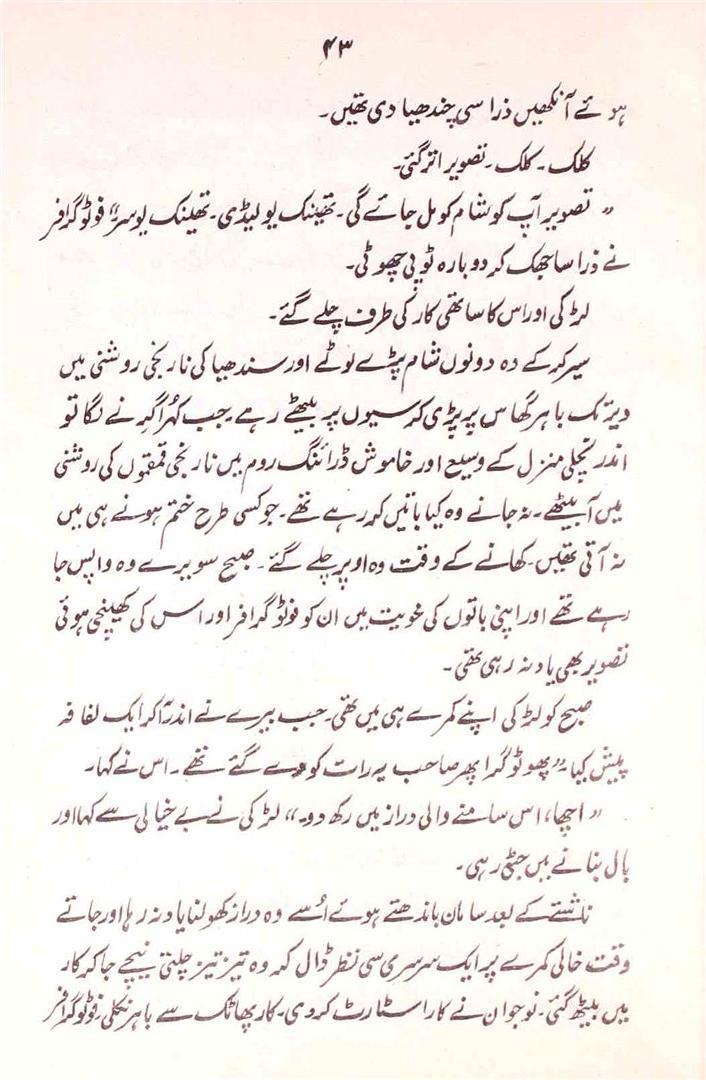 ۴۳
ہوئے آنکھیں ذرا سی چندھیا دی تھیں۔
کلک۔ کلک۔ تصویر اتر گئی۔
" تصویر آپ کو شام کو مل جائے گی۔ تھینک یو لیڈی۔ تھینک یو سر" فوٹو گرافر
نے ذرا سا جھک کر دوبارہ ٹوپی چھوئی۔
لڑکی اور اس کا ساتھی کار کی طرف چلے گئے۔
سیر کر کے وہ دونوں شام پڑے لوٹے اور سندھیا کی نارنجی روشنی میں
دیر تک باہر گھاس پر پڑی کرسیوں پر بیٹھے رہے۔ جب کہُرا گرنے لگا تو
اندر نچلی منزل کے وسیع اور خاموش ڈرائنگ روم میں نارنجی قمقموں کی روشنی
میں آ بیٹھے۔ نہ جانے وہ کیا باتیں کر رہے تھے۔ جو کسی طرح ختم ہونے ہی میں
نہ آتی تھیں۔ کھانے کے وقت وہ اوپر چلے گئے۔ صبح سویرے وہ واپس جا
رہے تھے اور اپنی باتوں کی محویت میں ان کو فوٹو گرافر اور اس کی کھینچی ہوئی
تصویر بھی یاد نہ رہی تھی۔
صبح کو لڑکی اپنے کمرے ہی میں تھی۔ جب بیرے نے اندر آ کر ایک لفافہ
پیش کیا۔ "پھوٹو گراپھر صاحب یہ رات کو دے گئے تھے۔ اس نے کہا۔
" اچھا، اس سامنے والی دراز میں رکھ دو۔" لڑکی نے بے خیالی سے کہا اور
بال بنانے میں جٹی رہی۔
ناشتے کے بعد سامان باندھتے ہوئے اُسے وہ دراز کھولنا یاد نہ رہا اور جاتے
وقت خالی کمرے پر ایک سرسری سی نظر ڈال کر وہ تیز تیز چلتی نیچے جا کر کار
میں بیٹھ گئی۔ نوجوان نے کار اسٹارٹ کر دی۔ کار پھاٹک سے باہر نکلی۔ فوٹو گرافر